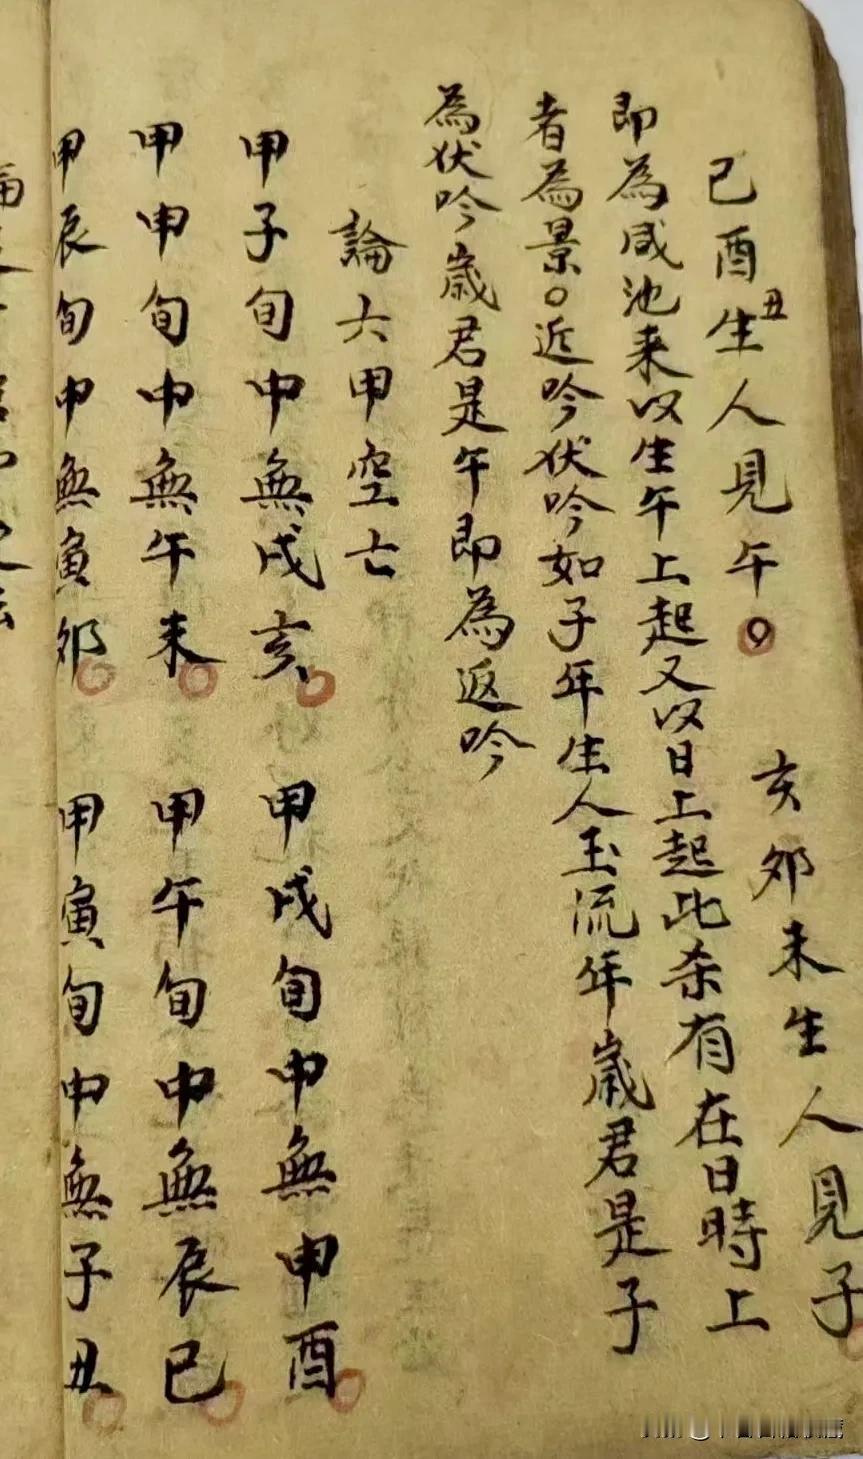 己酉丑生人見午○ 亥卯未生人見子
即為咸池来以生午上起又以日上起此杀有在日時上
者為景○近吟伏吟如子年生人玉流年歲君是子
為伏吟歲君是午即為返吟
論六甲空亡
甲子旬中無戌亥○ 甲戌旬中無申酉○
甲申旬中無午未○ 甲午旬中無辰巳○
甲辰旬中無寅卯○ 甲寅旬中無子丑○